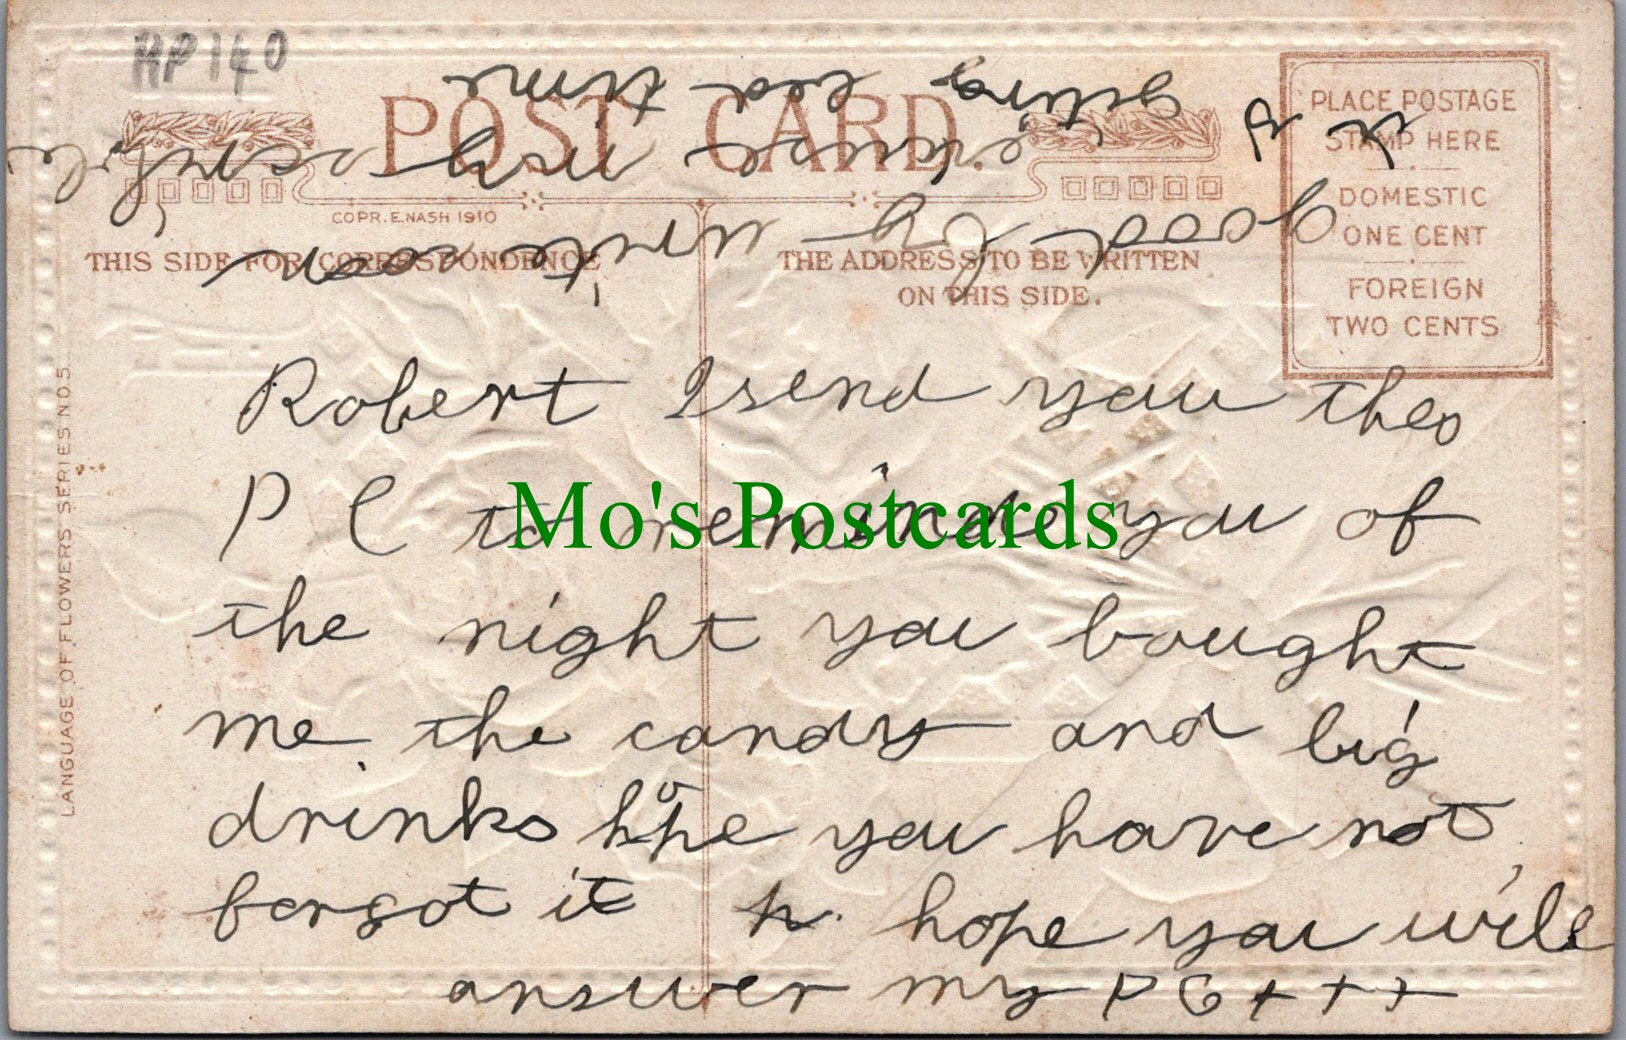 HP140
POST CARD.
COPR. E. NASH 1910
THIS SIDE FOR CORRESPONDENCE
THE ADDRESS TO BE WRITTEN
ON THIS SIDE.
PLACE POSTAGE
STAMP HERE
DOMESTIC
ONE CENT
FOREIGN
TWO CENTS
LANGUAGE OF FLOWERS SERIES NO. 5.
Robert I send you thes
P C to remind you of
the night you bought
me the candy and big
drinks hope you have not
forgot it hope you will
answer my P C + + +
good by write soon
excuse my
geting bed time
Mo's Postcards